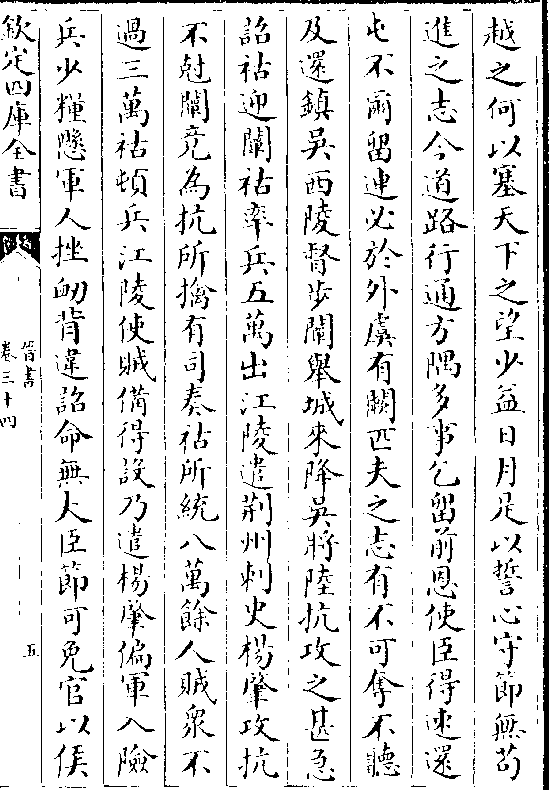 越之何以塞天下之望少益日月足以誓心守節無苟
進之志今道路行通方隅多事乞留前恩使臣得速還
屯不爾留連必於外虞有闕匹夫之志有不可奪不聽
及還鎮吳西陵督步闡舉城來降吳將陸抗攻之甚急
詔祜迎闡祜率兵五萬出江陵遣荆州刺史楊肇攻抗
不尅闡竟為抗所擒有司奏祜所統八萬餘人賊衆不
過三萬祜頓兵江陵使賊備得設乃遣楊肇偏軍入險
兵少糧懸軍人挫衂背違詔命無大臣節可免官以侯
欽定四庫全書
晉書
卷三十四
五